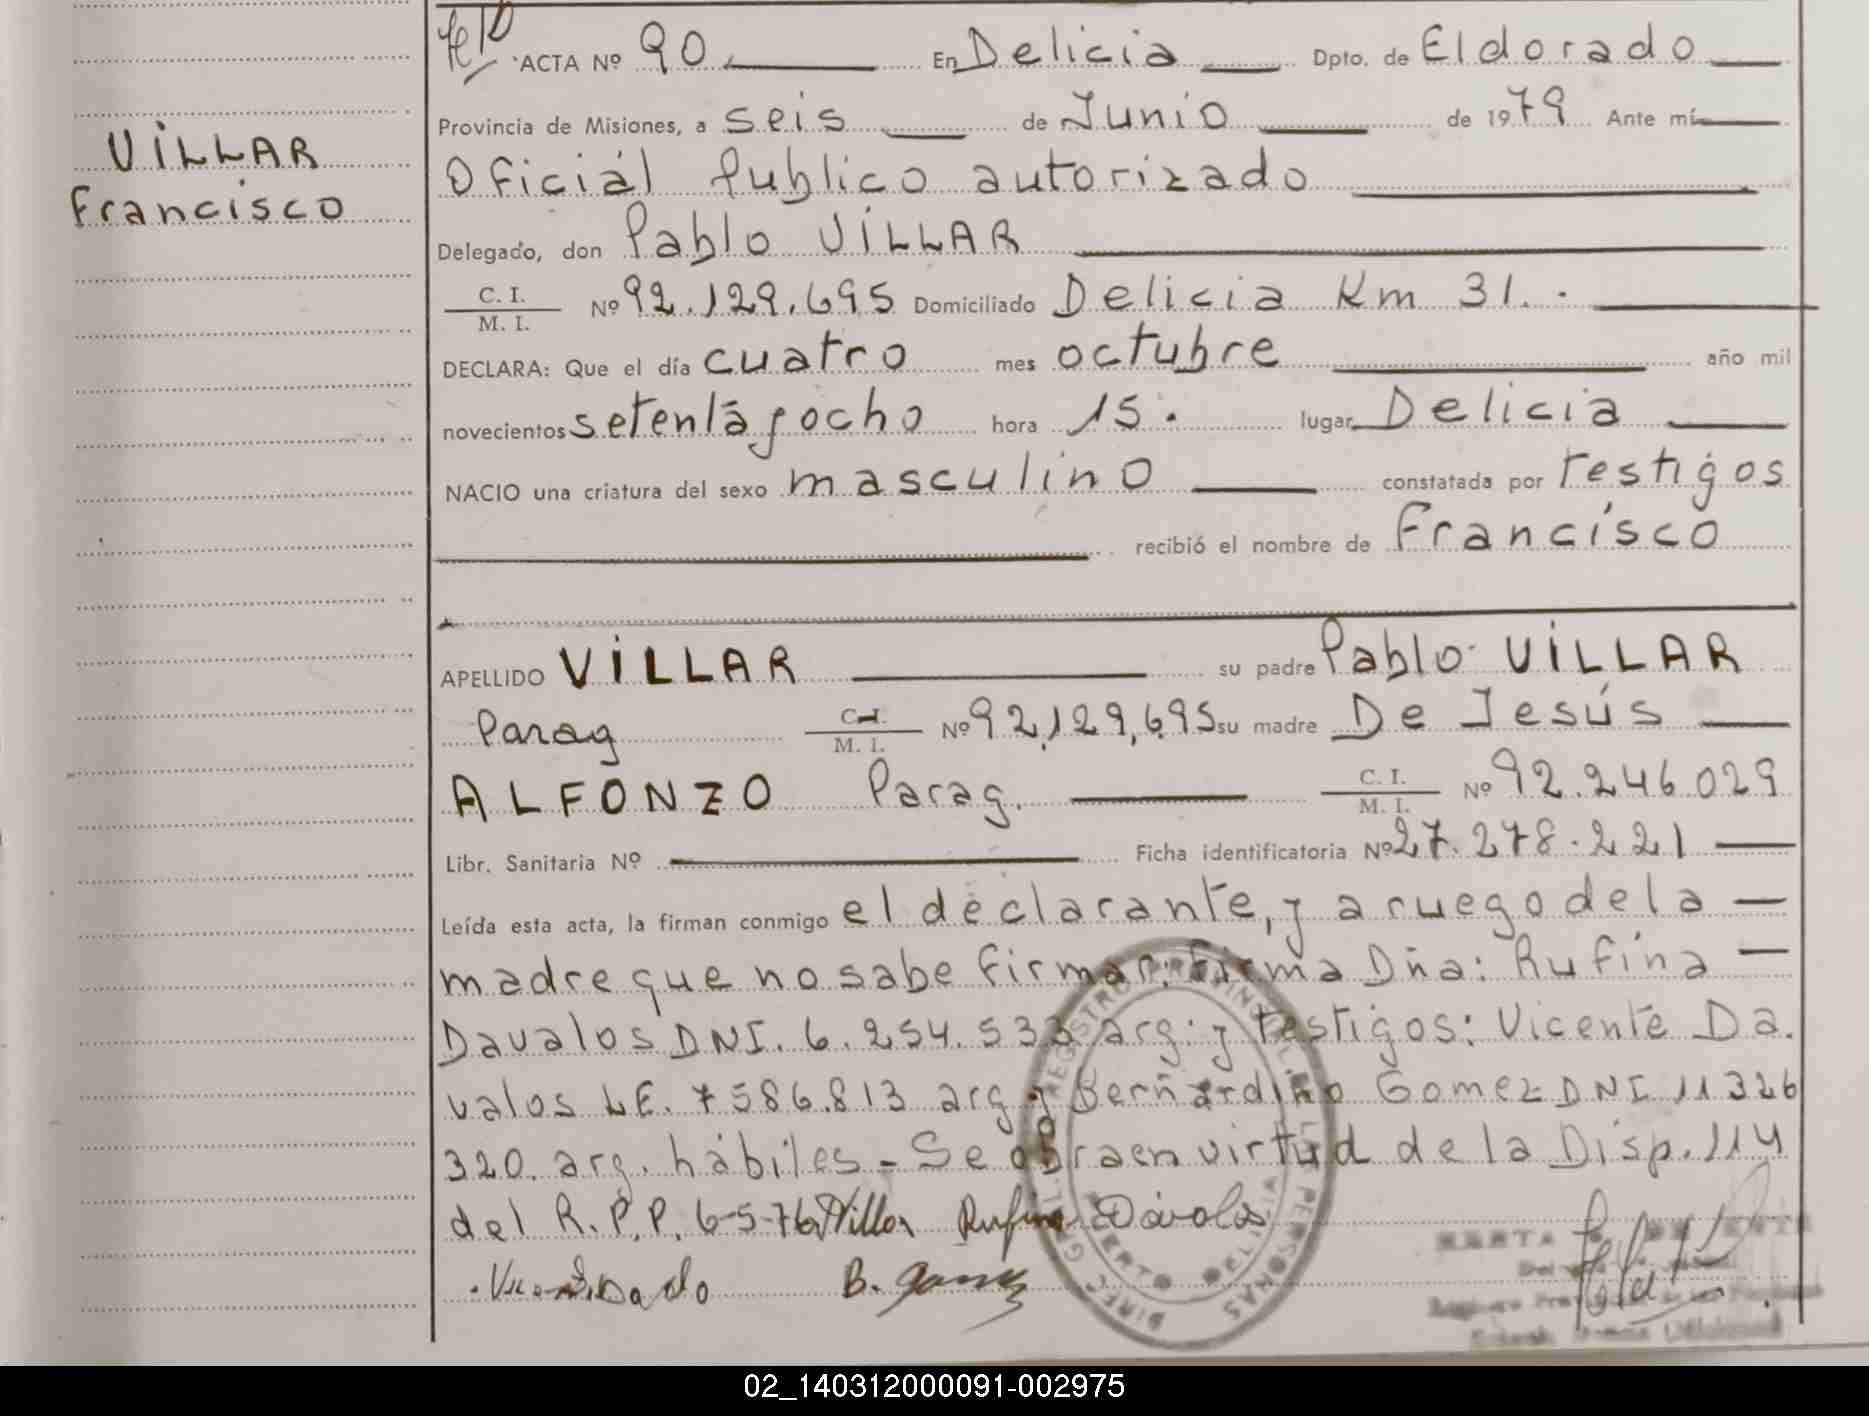 VILLAR
Francisco
ACTA Nº 90 En Delicia Dpto. de Eldorado
Provincia de Misiones, a seis de Junio de 1979 Ante mí
Oficiál Publico autorizado
Delegado, don Pablo VILLAR
C. I. / M. I. Nº 92.129.695 Domiciliado Delicia Km 31.
DECLARA: Que el día cuatro mes octubre año mil
novecientos setenta y ocho hora 15. lugar Delicia
NACIO una criatura del sexo masculino constatada por testigos
recibió el nombre de Francisco
APELLIDO VILLAR su padre Pablo VILLAR
Parag C. I. / M. I. Nº 92,129,695 su madre De Jesús
ALFONZO Parag. C. I. / M. I. Nº 92.246.029
Libr. Sanitaria Nº Ficha identificatoria Nº 27.278.221
Leída esta acta, la firman conmigo el declarante, y a ruego de la
madre que no sabe firmar: firma Dña: Rufina
Davalos DNI. 6.254.533 arg: y testigos: Vicente Da.
valos LE. 7586.813 arg y Bernardino Gomez DNI 11326
320. arg. hábiles - Se obra en virtud de la Disp. 114
del R.P.P. 6-5-76 Villar Rufina Dávalos
B. Gomez
REGISTRO PROVINCIAL DE LAS PERSONAS
PUERTO DELICIA
02_140312000091-002975